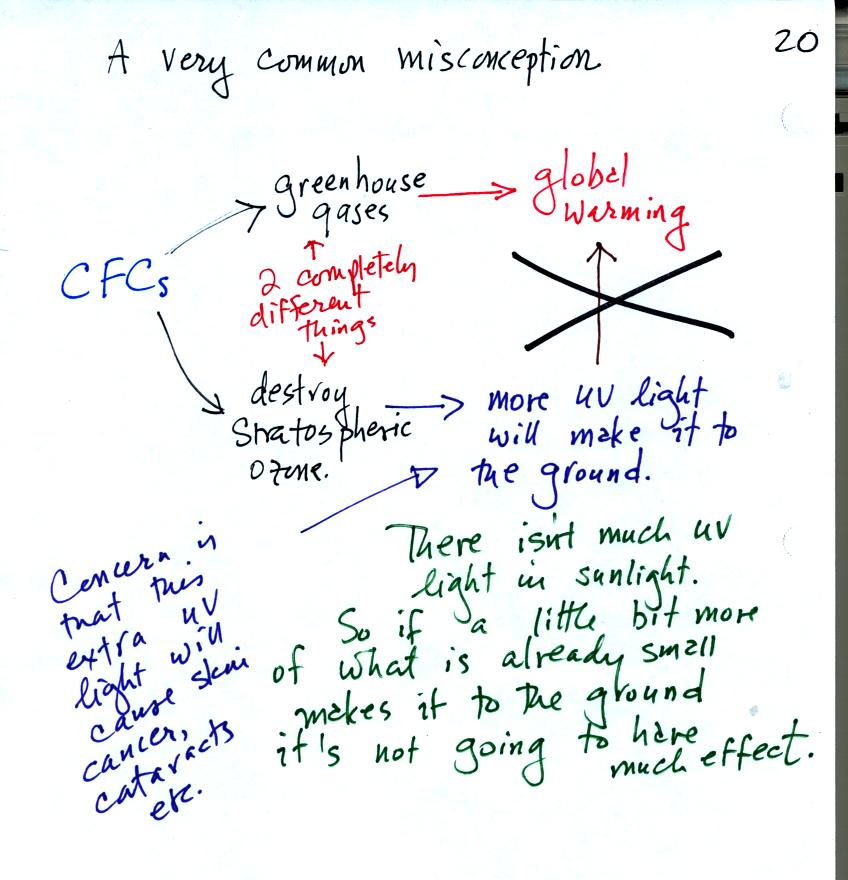 20
A very common misconception
greenhouse
gases
global
warming
CFCs
2 completely
different
things
destroy
Stratospheric
ozone.
more UV light
will make it to
the ground.
Concern is
that this
extra UV
light will
cause skin
cancer,
cataracts
etc.
There isn't much UV
light in sunlight.
So if a little bit more
of what is already small
makes it to the ground
it's not going to have
much effect.